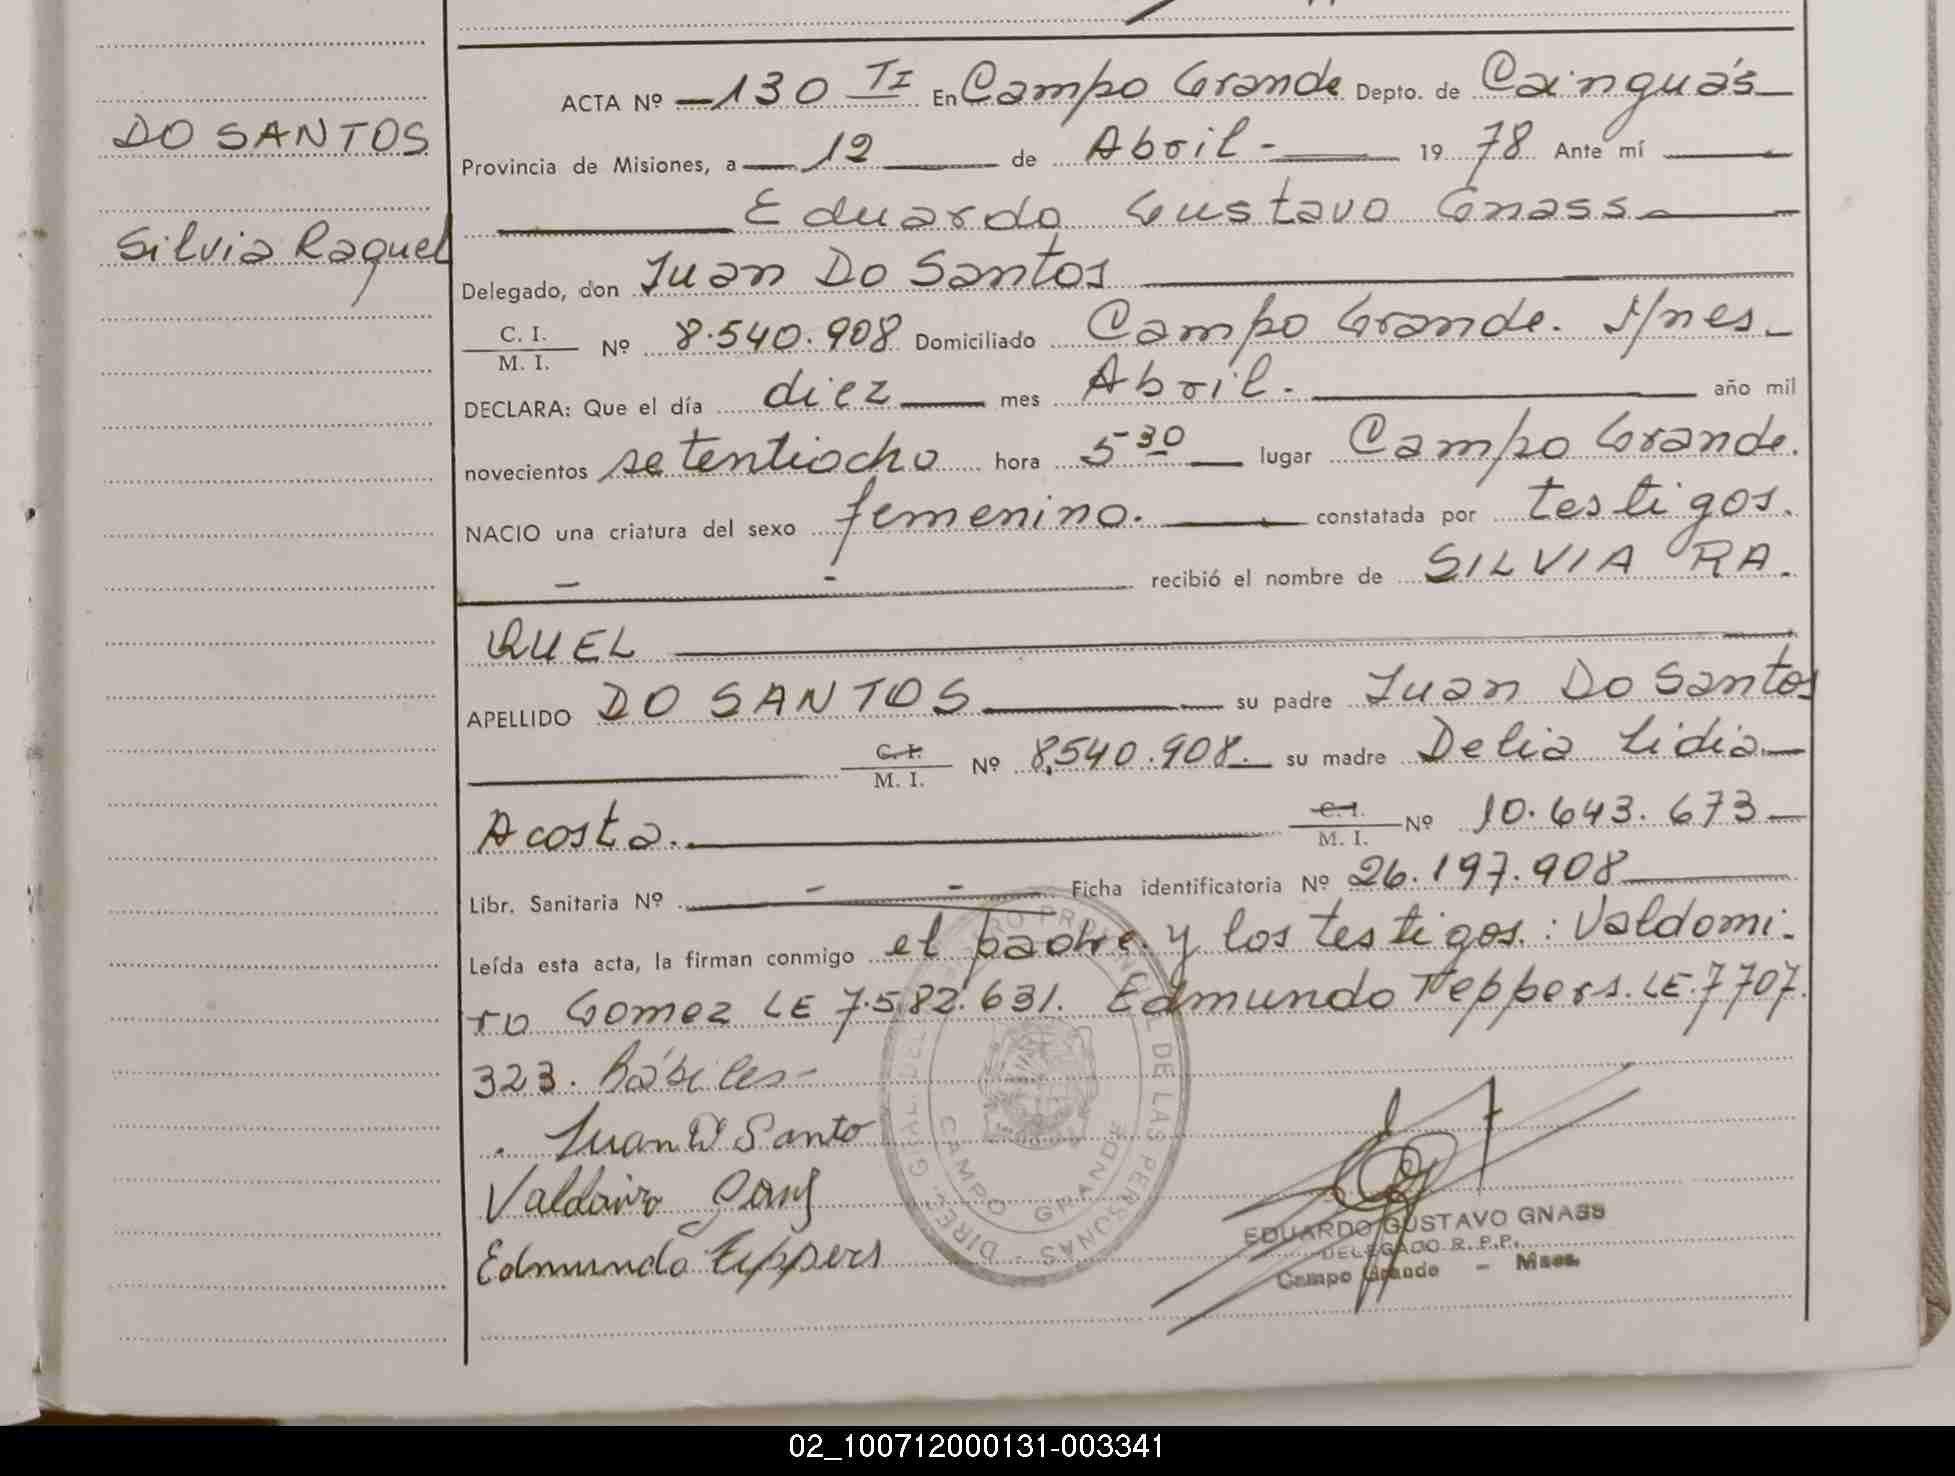 DO SANTOS
Silvia Raquel
ACTA Nº 130 TI En Campo Grande Depto. de Cainguás
Provincia de Misiones, a 12 de Abril - 19 78 Ante mí
Eduardo Gustavo Gnass
Delegado, don Juan Do Santos
C. I. / M. I. Nº 8.540.908 Domiciliado Campo Grande. M/nes
DECLARA: Que el día diez mes Abril. año mil
novecientos setentiocho hora 5 30 lugar Campo Grande.
NACIO una criatura del sexo femenino. constatada por testigos.
- - recibió el nombre de SILVIA RA.
QUEL
APELLIDO DO SANTOS su padre Juan Do Santos
C. I. / M. I. Nº 8,540.908. su madre Delia Lidia
Acosta. C. I. / M. I. Nº 10.643.673
Libr. Sanitaria Nº - - Ficha identificatoria Nº 26.197.908
Leída esta acta, la firman conmigo el padre y los testigos: Valdomi-
ro Gomez LE 7.582.631. Edmundo Teppers. LE. 7707.
323. hábiles-
Juan D Santo
Edmundo Teppers
DIREC. GRAL. DEL REGISTRO PROVINCIAL DE LAS PERSONAS -
CAMPO GRANDE
EDUARDO GUSTAVO GNASS
DELEGADO R.P.P.
Campo Grande - Mnes.
02_100712000131-003341